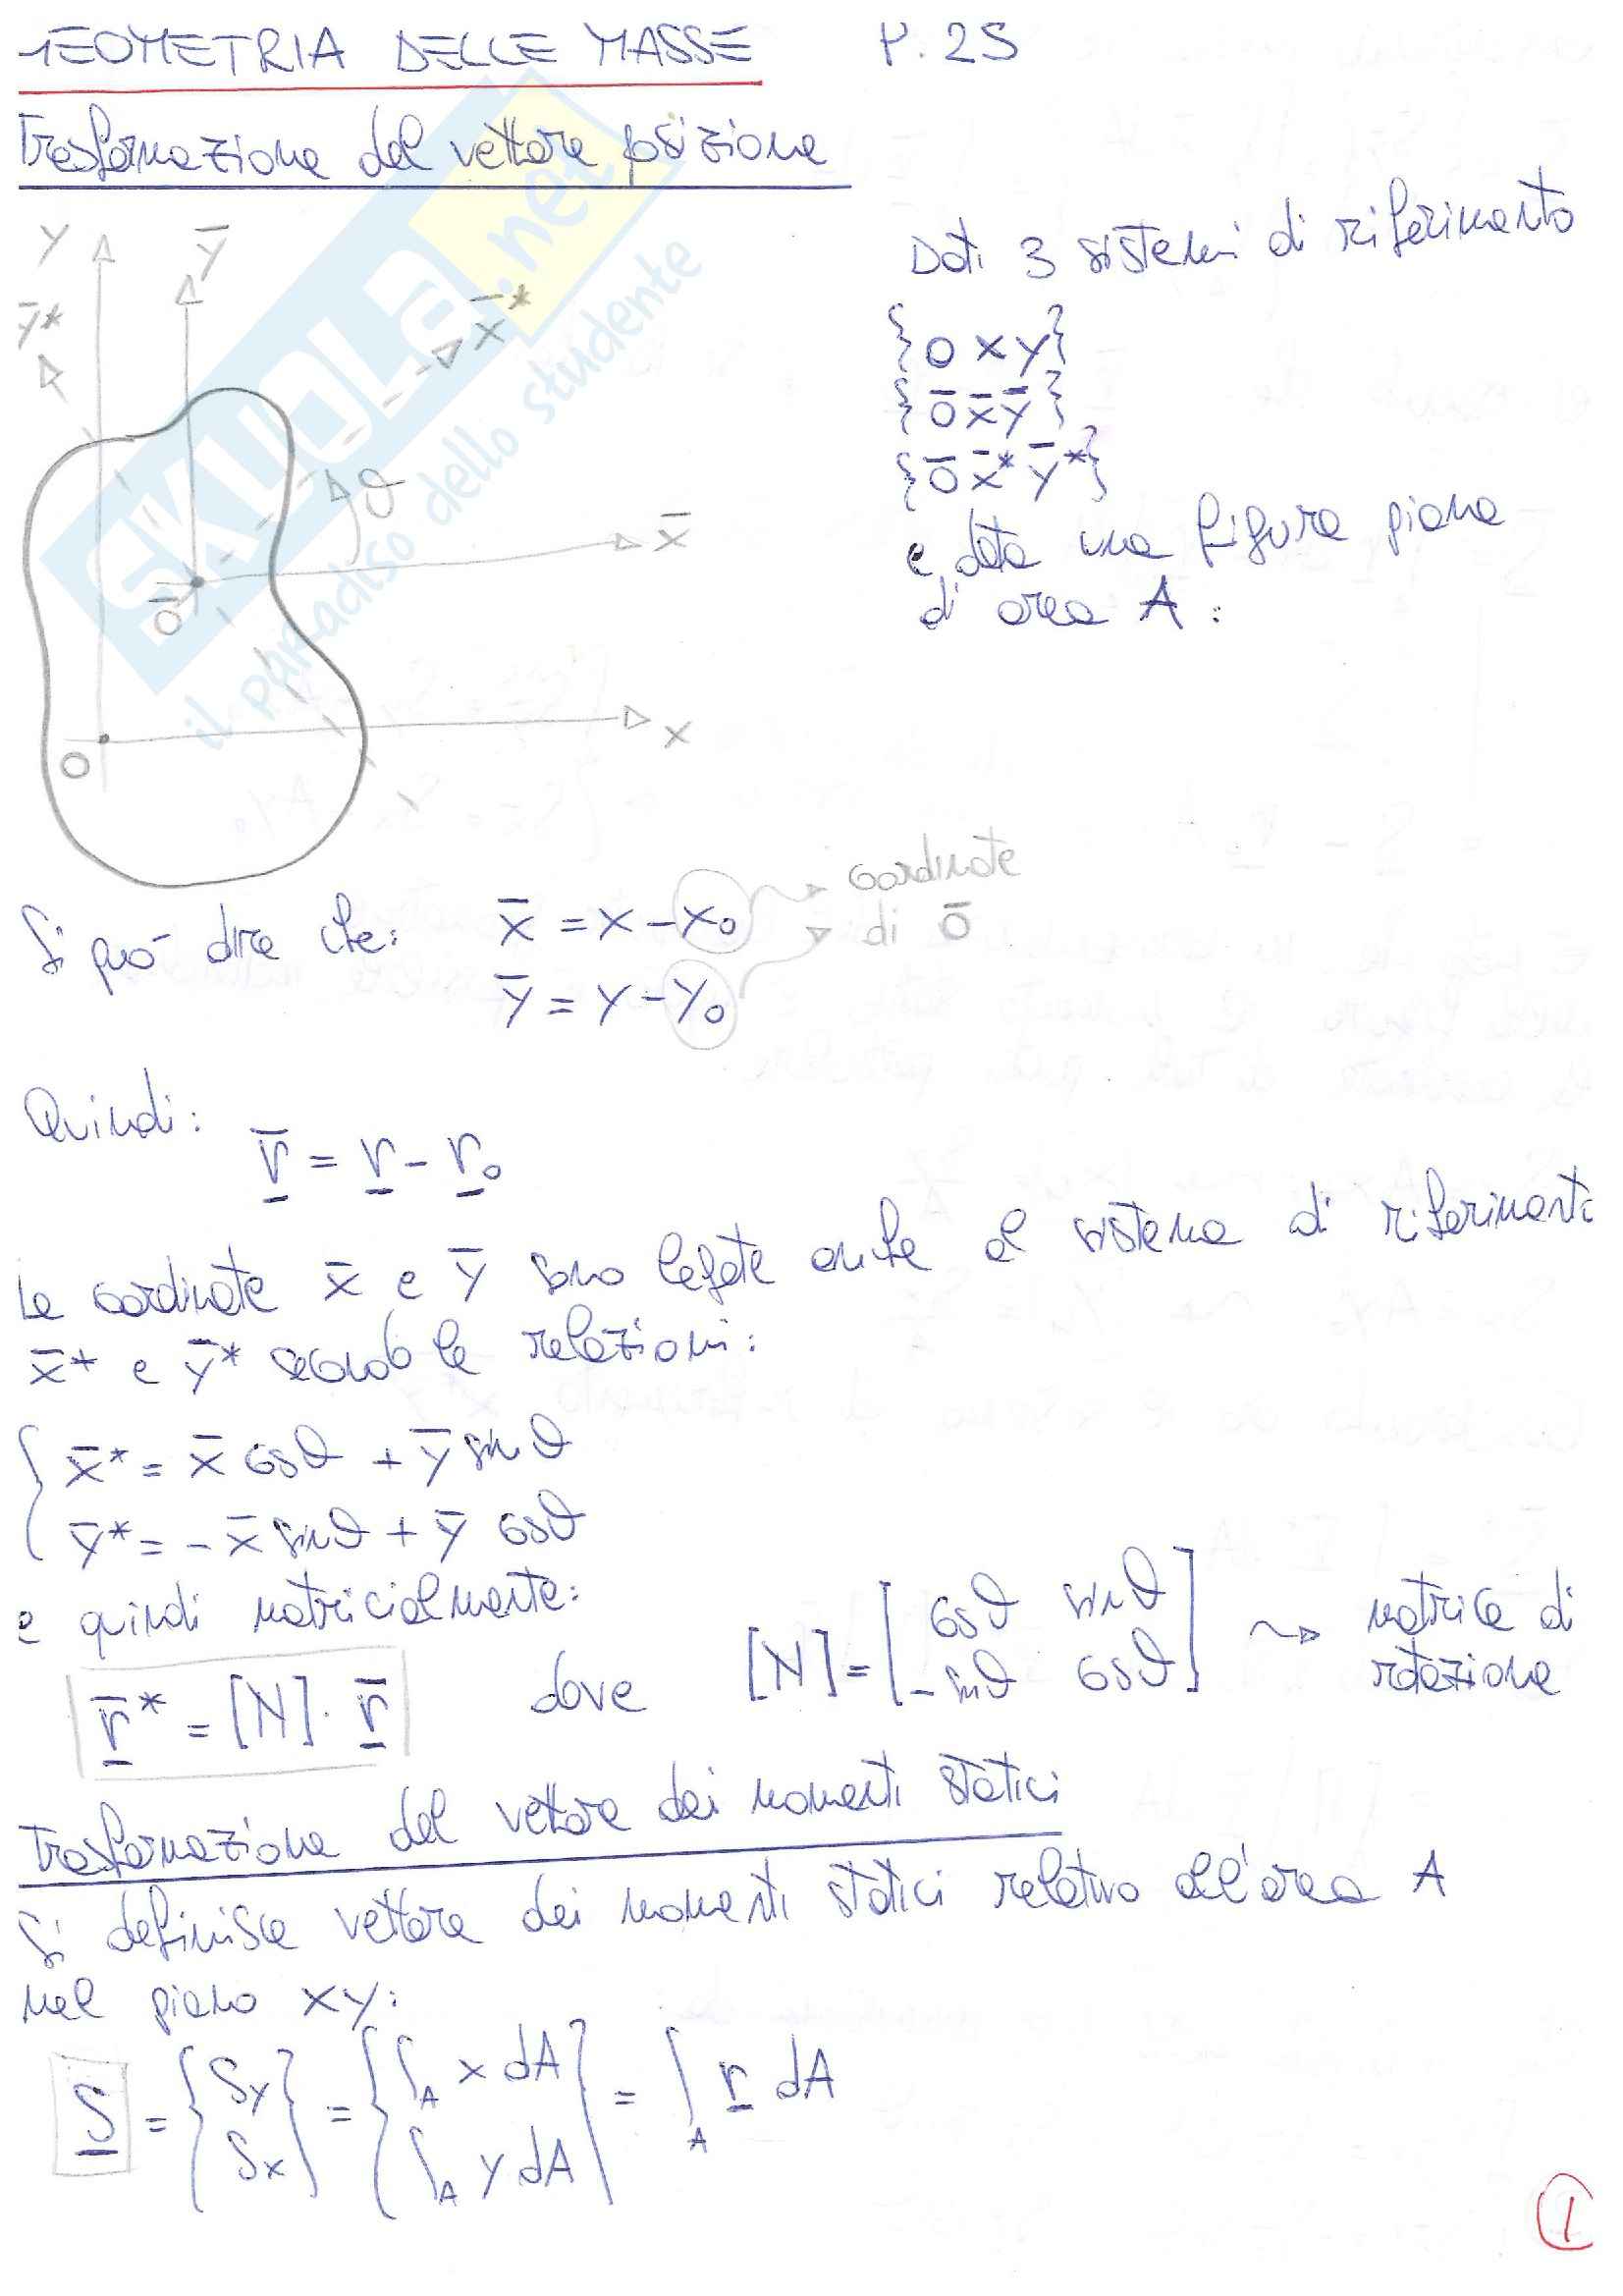 GEOMETRIA DELLE MASSE P. 25
Trasformazione del vettore posizione
Dati 3 sistemi di riferimento
{O x y}
{O̅ x̅ y̅}
{O̅ x̅* y̅*}
e data una figura piana
di area A:
y y̅
y̅* x̅*
ϑ
x̅
O̅
x
O
SKUOLA.net
il paradiso dello studente
Si può dire che: x̅ = x - x₀ coordinate
di O̅
y̅ = y - y₀
Quindi:
r̅ = r - r₀
Le coordinate x̅ e y̅ sono legate anche al sistema di riferimento
x̅* e y̅* secondo le relazioni:
{ x̅* = x̅ cosϑ + y̅ sinϑ
y̅* = - x̅ sinϑ + y̅ cosϑ
e quindi matricialmente:
r̅* = [N] · r̅ dove [N] = [ cosϑ sinϑ ; -sinϑ cosϑ ] ⤳ matrice di rotazione
Trasformazione del vettore dei momenti statici
Si definisce vettore dei momenti statici relativo all'area A
nel piano xy:
S = { Sy ; Sx } = { ∫A x dA ; ∫A y dA } = ∫A r dA
1